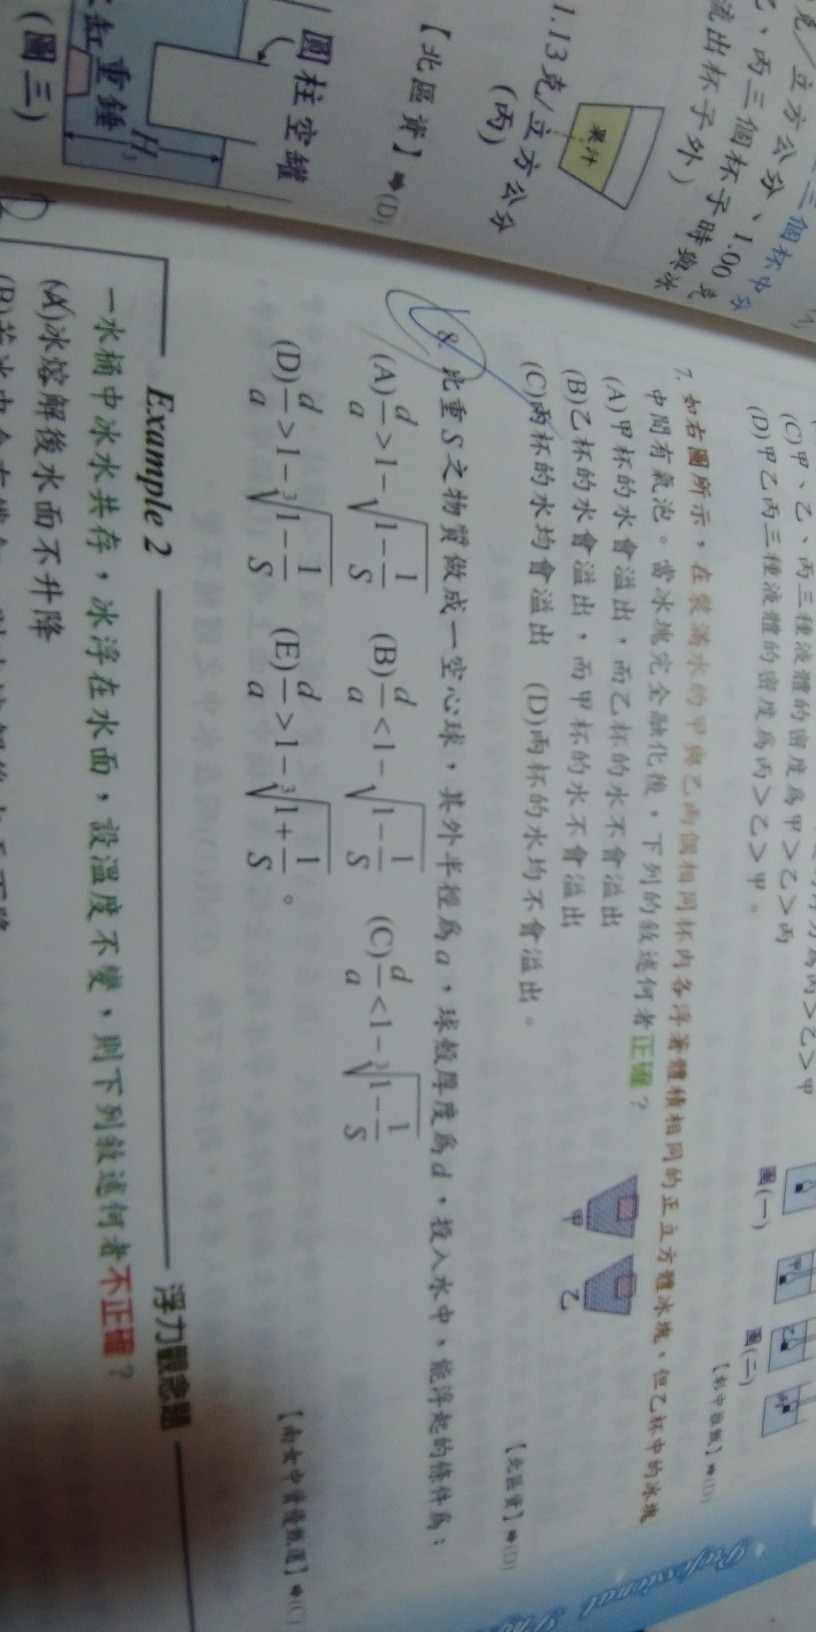 1.13克/立方公分
(丙)
果汁
流出杯子外)
【北區資】➡(D)
圓柱空罐
重錘
H
(圖三)
(C)甲、乙、丙三種液體的密度為甲>乙>丙
(D)甲乙丙三種液體的密度為丙>乙>甲。
圖(一)
圖(二)
7. 如右圖所示,在裝滿水的甲與乙兩個相同杯內各浮著體積相同的正立方體冰塊,但乙杯中的冰塊
中間有氣泡。當冰塊完全融化後,下列的敘述何者正確?
(A)甲杯的水會溢出,而乙杯的水不會溢出
(B)乙杯的水會溢出,而甲杯的水不會溢出
(C)兩杯的水均會溢出 (D)兩杯的水均不會溢出。
甲 乙
【北區資】➡(D)
8. 比重S之物質做成一空心球,其外半徑為a,球殼厚度為d,投入水中,能浮起的條件為:
(A) d/a > 1 - √(1 - 1/S) (B) d/a < 1 - √(1 - 1/S) (C) d/a < 1 - ∛(1 - 1/S)
(D) d/a > 1 - ∛(1 - 1/S) (E) d/a > 1 - ∛(1 + 1/S)。
【南女中資優甄選】➡(C)
Example 2 浮力觀念題
一水桶中冰水共存,冰浮在水面,設溫度不變,則下列敘述何者不正確?
(A)冰熔解後水面不升降
Professional